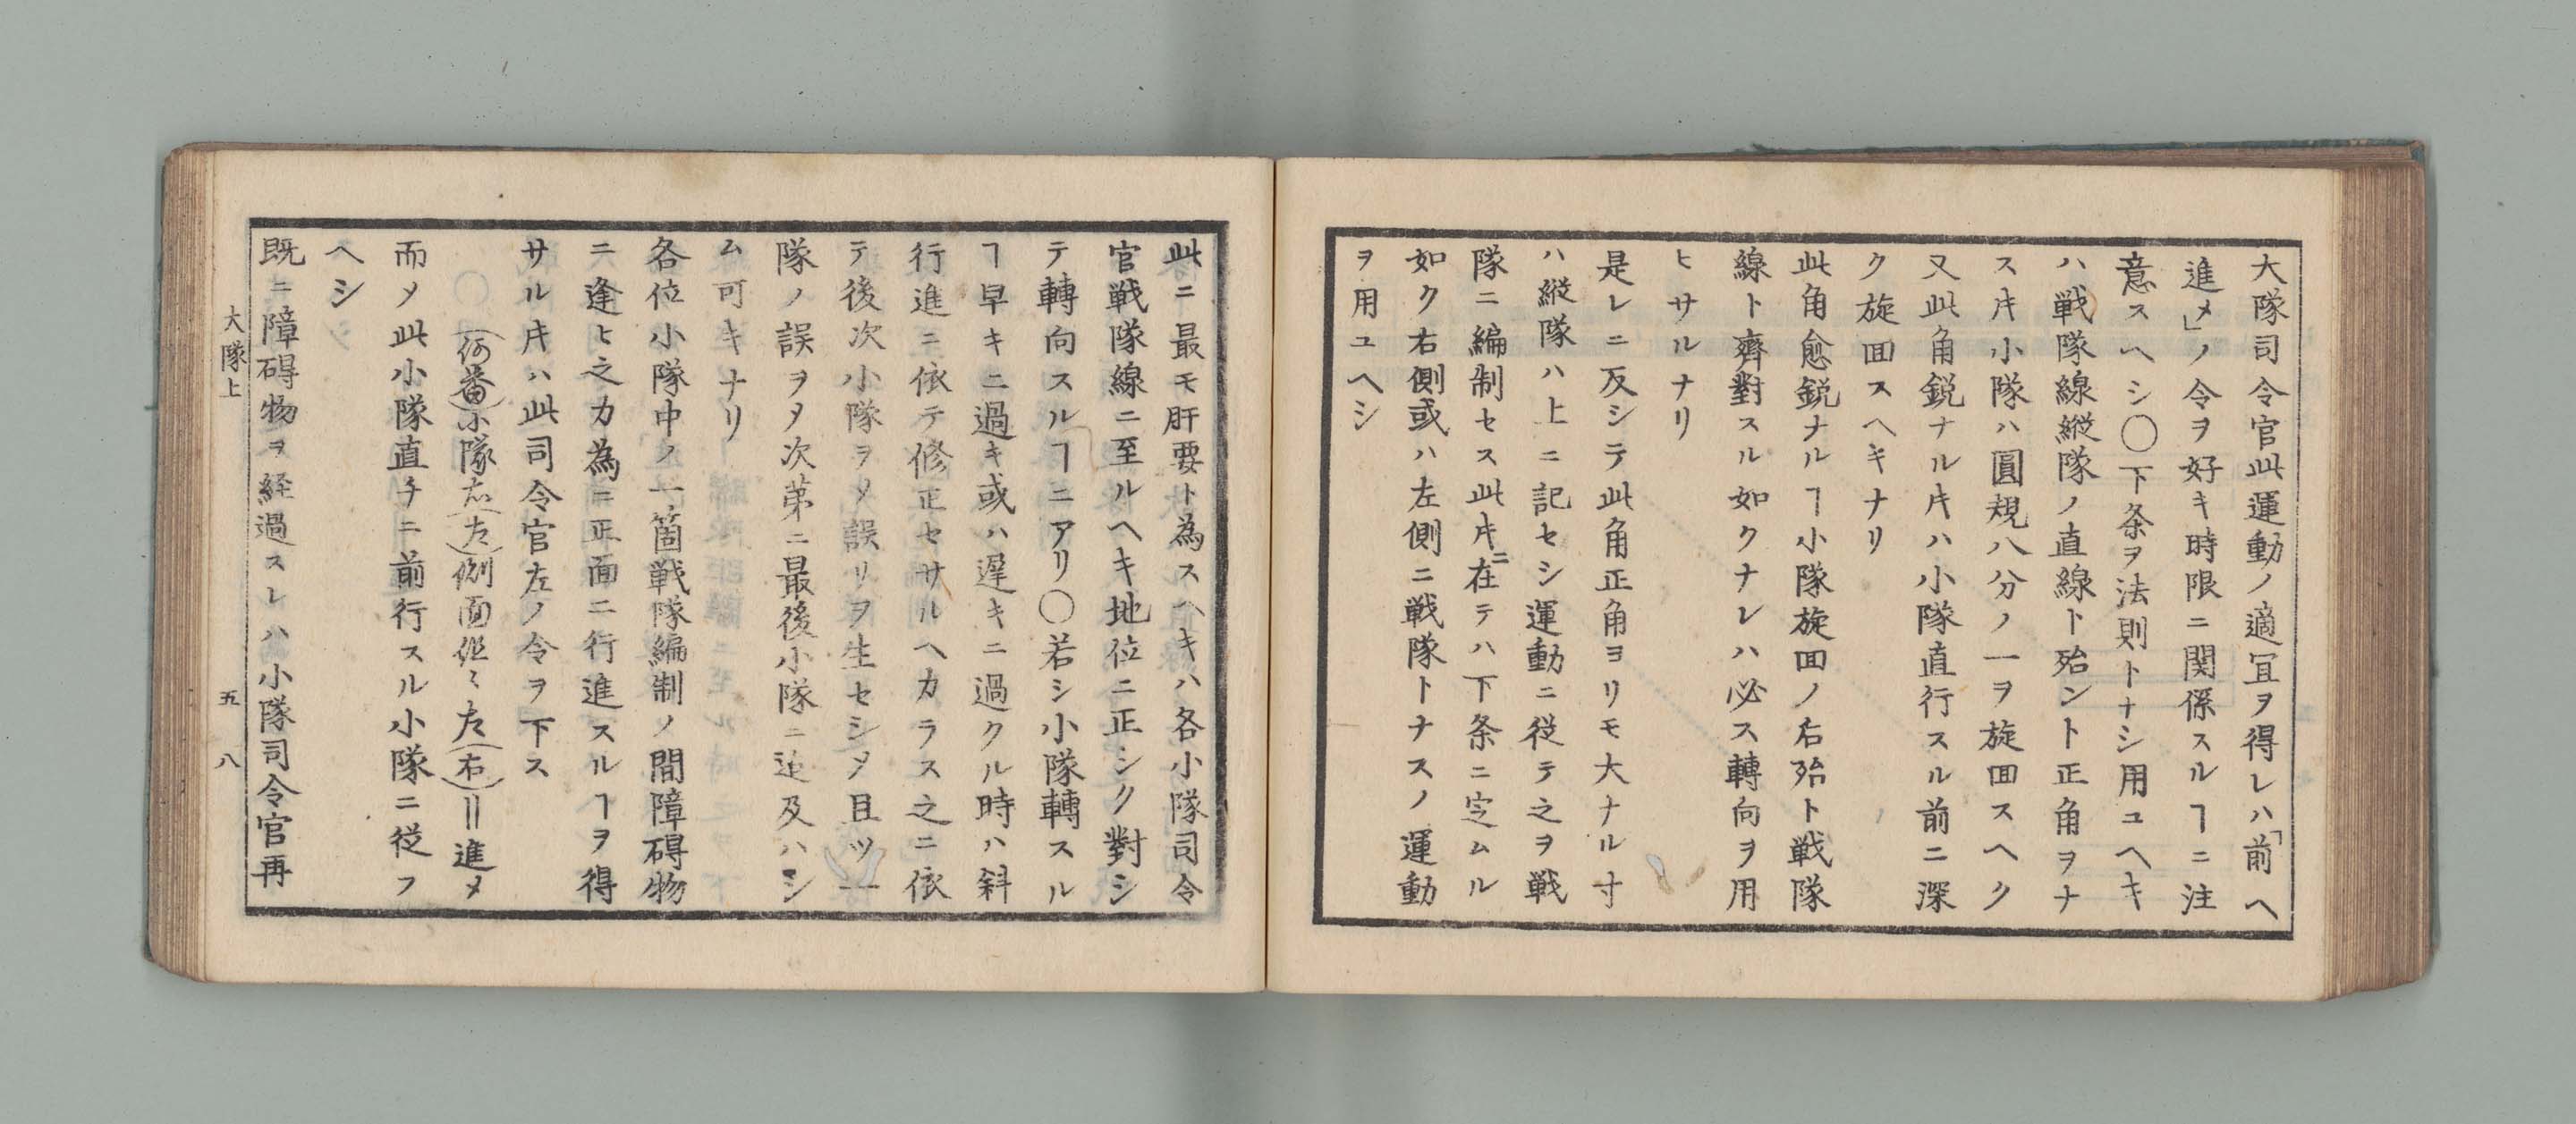 大隊司令官此運動ノ適冝ヲ得レハ「前ヘ
進メ」ノ令ヲ好キ時限ニ関係スルヿニ注
意スヘシ〇下条ヲ法則トナシ用ユヘキ
ハ戦隊線縦隊ノ直線ト殆ント正角ヲナ
ス片小隊ハ圓規八分ノ一ヲ旋回スヘク
又此角鋭ナル片ハ小隊直行スル前ニ深
ク旋回スヘキナリ
此角愈鋭ナルヿ小隊旋回ノ后殆ト戦隊
線ト齊對スル如クナレハ必ス轉向ヲ用
ヒサルナリ
是レニ反シテ此角正角ヨリモ大ナル寸
ハ縦隊ハ上ニ記セシ運動ニ従テ之ヲ戦
隊ニ編制セス此片ニ在テハ下条ニ定ムル
如ク右側或ハ左側ニ戦隊トナスノ運動
ヲ用ユヘシ
此ニ最モ肝要ト為スヘキハ各小隊司令
官戦隊線ニ至ルヘキ地位ニ正シク對シ
テ轉向スルヿニアリ〇若シ小隊轉スル
ヿ早キニ過キ或ハ遅キニ過クル時ハ斜
行進ニ依テ修正セサルヘカラス之ニ依
テ後次小隊ヲメ誤リヲ生セシメ且ツ一
隊ノ誤ヲヲ次第ニ最後小隊ニ迠及ハシ
ム可キナリ
各位小隊中ノ一箇戦隊編制ノ間障碍物
ニ逢ヒ之カ為ニ正面ニ行進スルヿヲ得
サル片ハ此司令官左ノ令ヲ下ス
(何番)小隊右(左)側面組々左(右)=進メ
而メ此小隊直チニ前行スル小隊ニ従フ
ヘシ
既ニ障碍物ヲ経過スレハ小隊司令官再
大隊上
五八